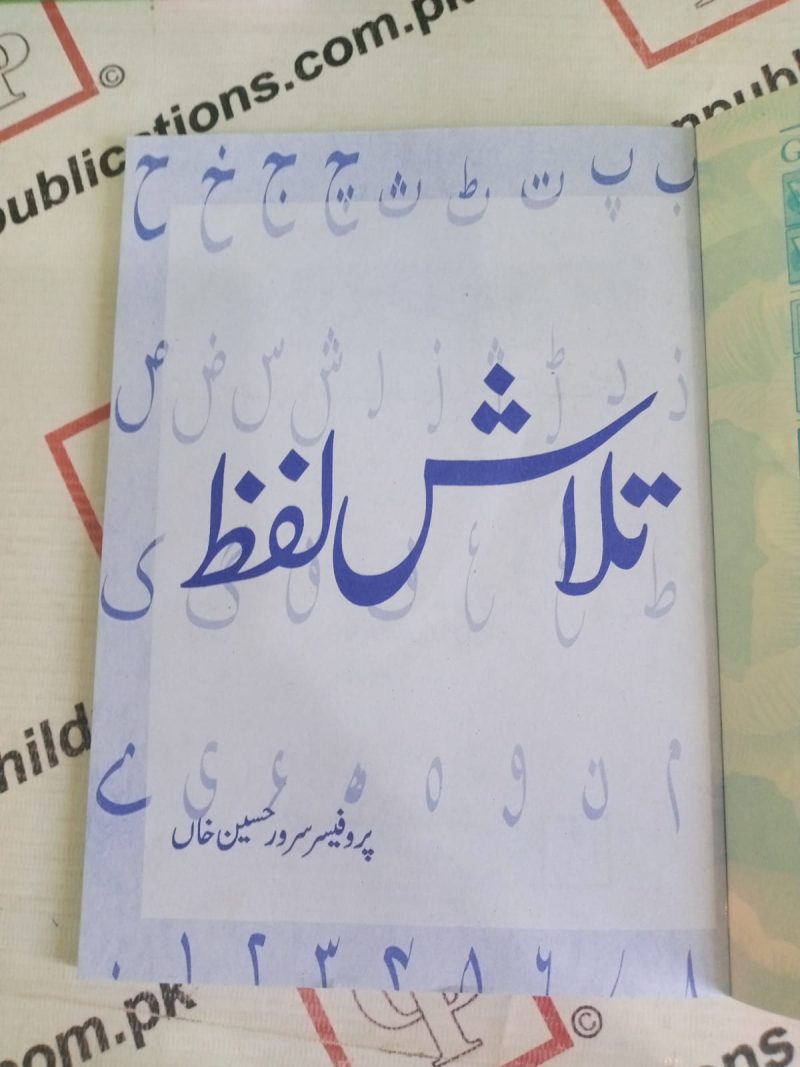 publications.com.pk
ب پ ت ٹ ث چ ج خ ح
ذ د ڑ ژ ز ر ش س ض ص
تلاش لفظ
ط ع ف ق ی
م ن و ہ ھ ء ی ے
پروفیسر سرور حسین خاں
۰ ۱ ۲ ۳ ۴ ۵ ۶ ۷ ۸
child
com.pk
©